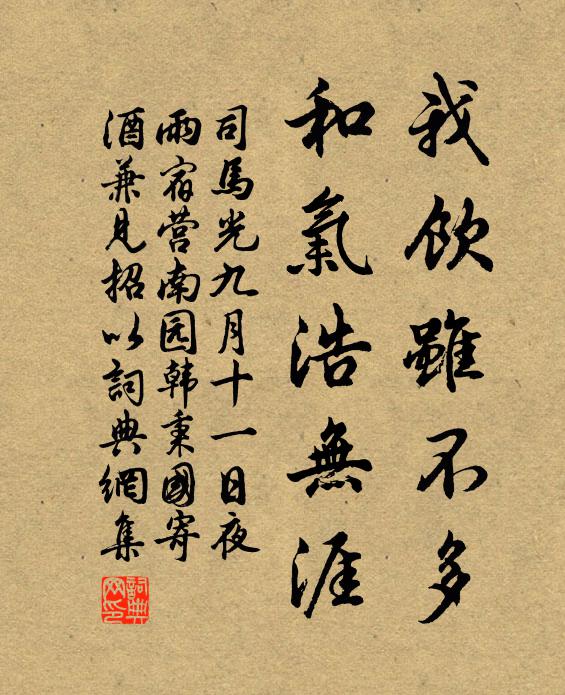 我飲雖不多
和氣浩無涯
司馬光九月十一日夜
雨宿营南园韩秉國寄
酒兼見招以詞典網集
詞典
网印